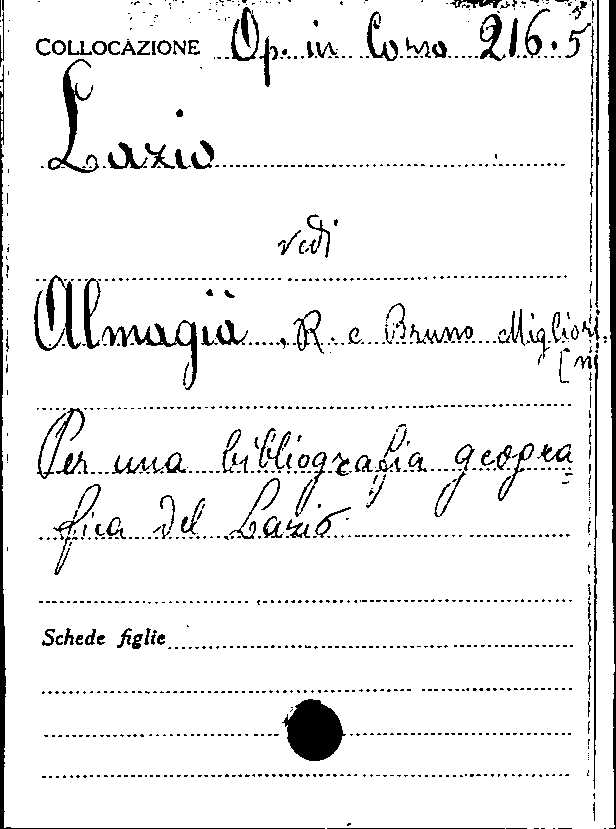 COLLOCAZIONE Op. in Corso 216.5
Lazio
vedi
Almagià, R. e Bruno Migliori
Per una bibliografia geogra=
fica del Lazio
Schede figlie